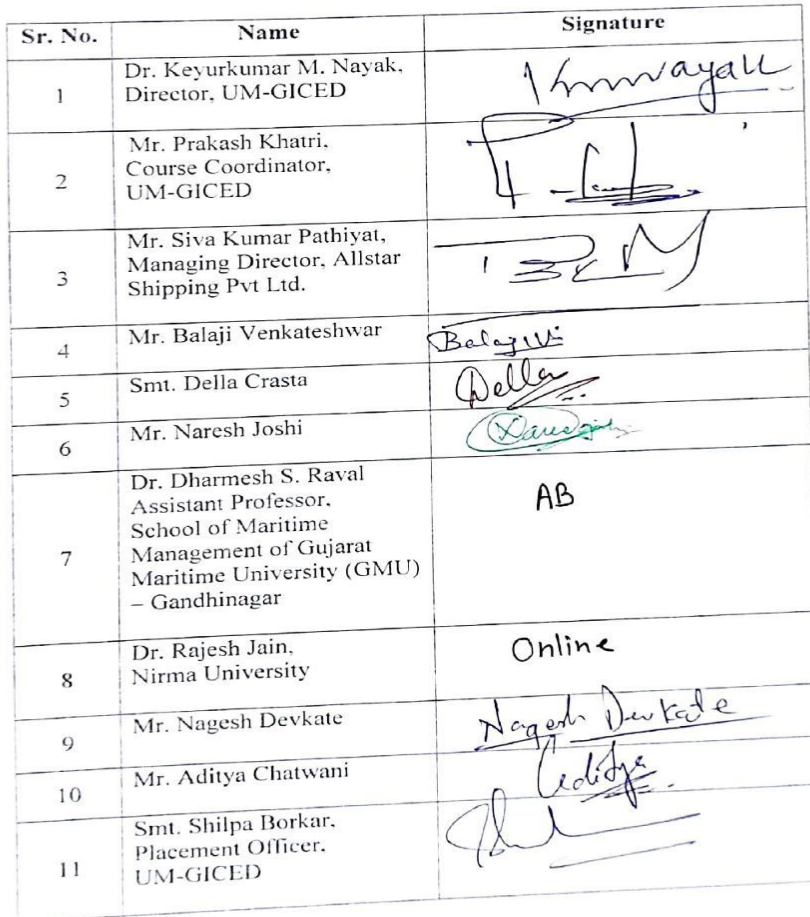 Sr. No. Name Signature
1 Dr. Keyurkumar M. Nayak,
Director, UM-GICED
2 Mr. Prakash Khatri,
Course Coordinator,
UM-GICED
3 Mr. Siva Kumar Pathiyat,
Managing Director, Allstar
Shipping Pvt Ltd.
4 Mr. Balaji Venkateshwar
5 Smt. Della Crasta Della
6 Mr. Naresh Joshi
7 Dr. Dharmesh S. Raval AB
Assistant Professor,
School of Maritime
Management of Gujarat
Maritime University (GMU)
– Gandhinagar
8 Dr. Rajesh Jain, Online
Nirma University
9 Mr. Nagesh Devkate Nagesh Devkate
10 Mr. Aditya Chatwani Aditya
11 Smt. Shilpa Borkar,
Placement Officer,
UM-GICED